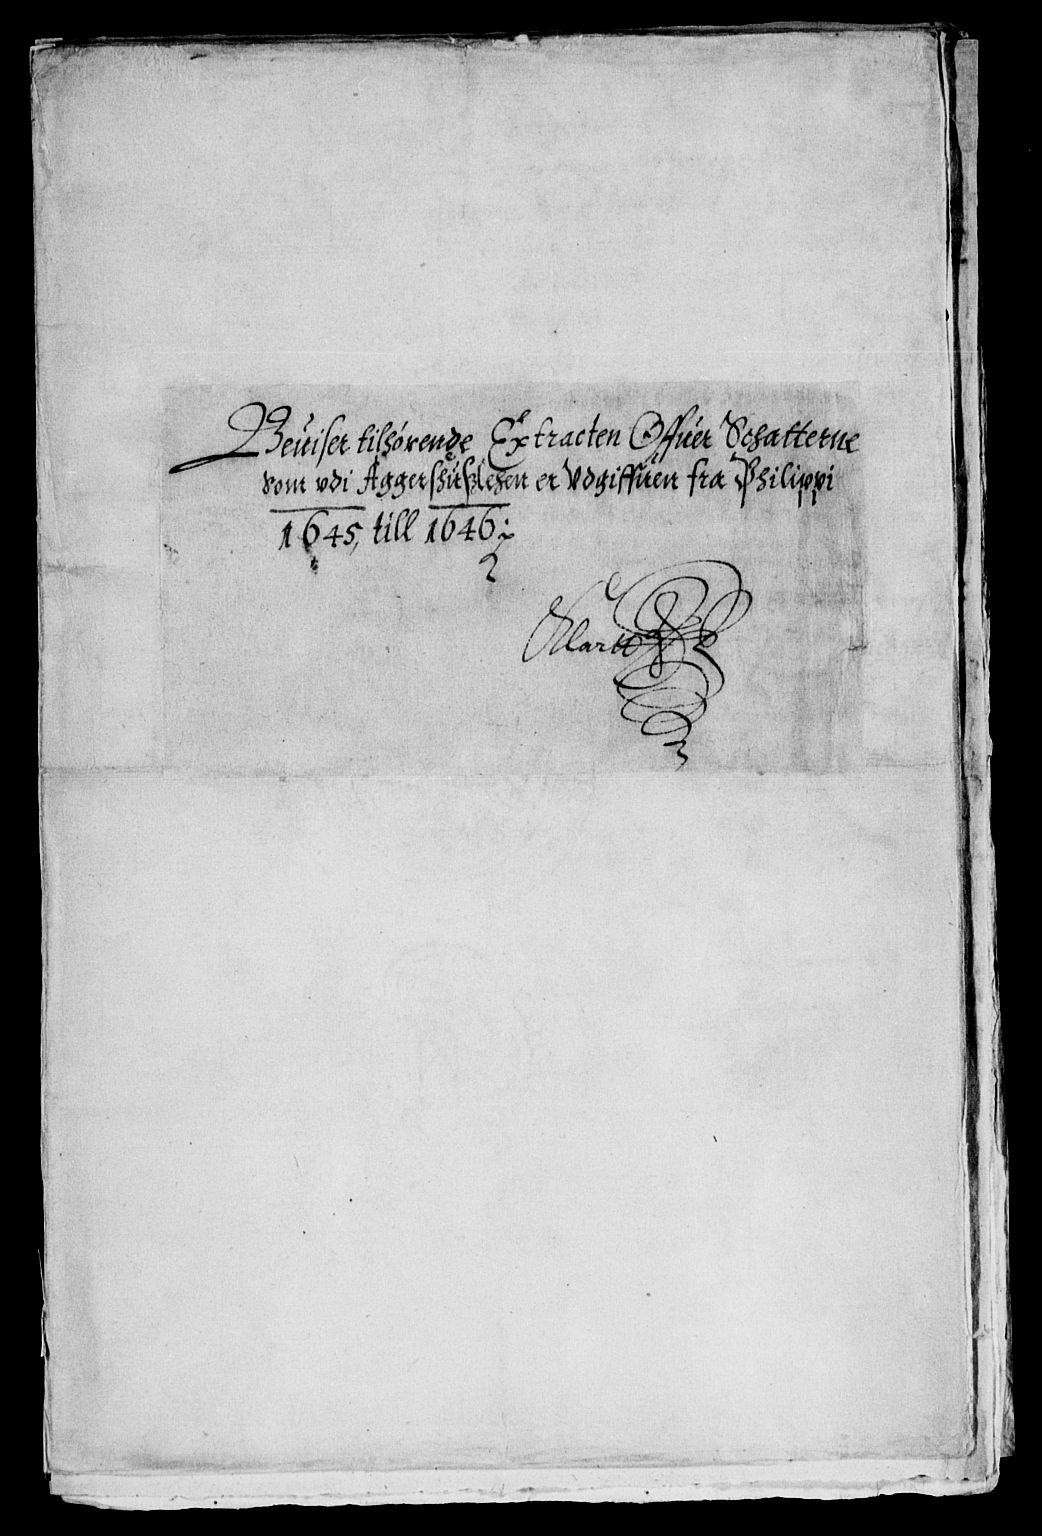 Beuiser tilhørende Extracten Offuer Schatterne
som vdi Aggershuuslehen er Vdgiffuen fra Philippi
1645, till 1646:
Klartt